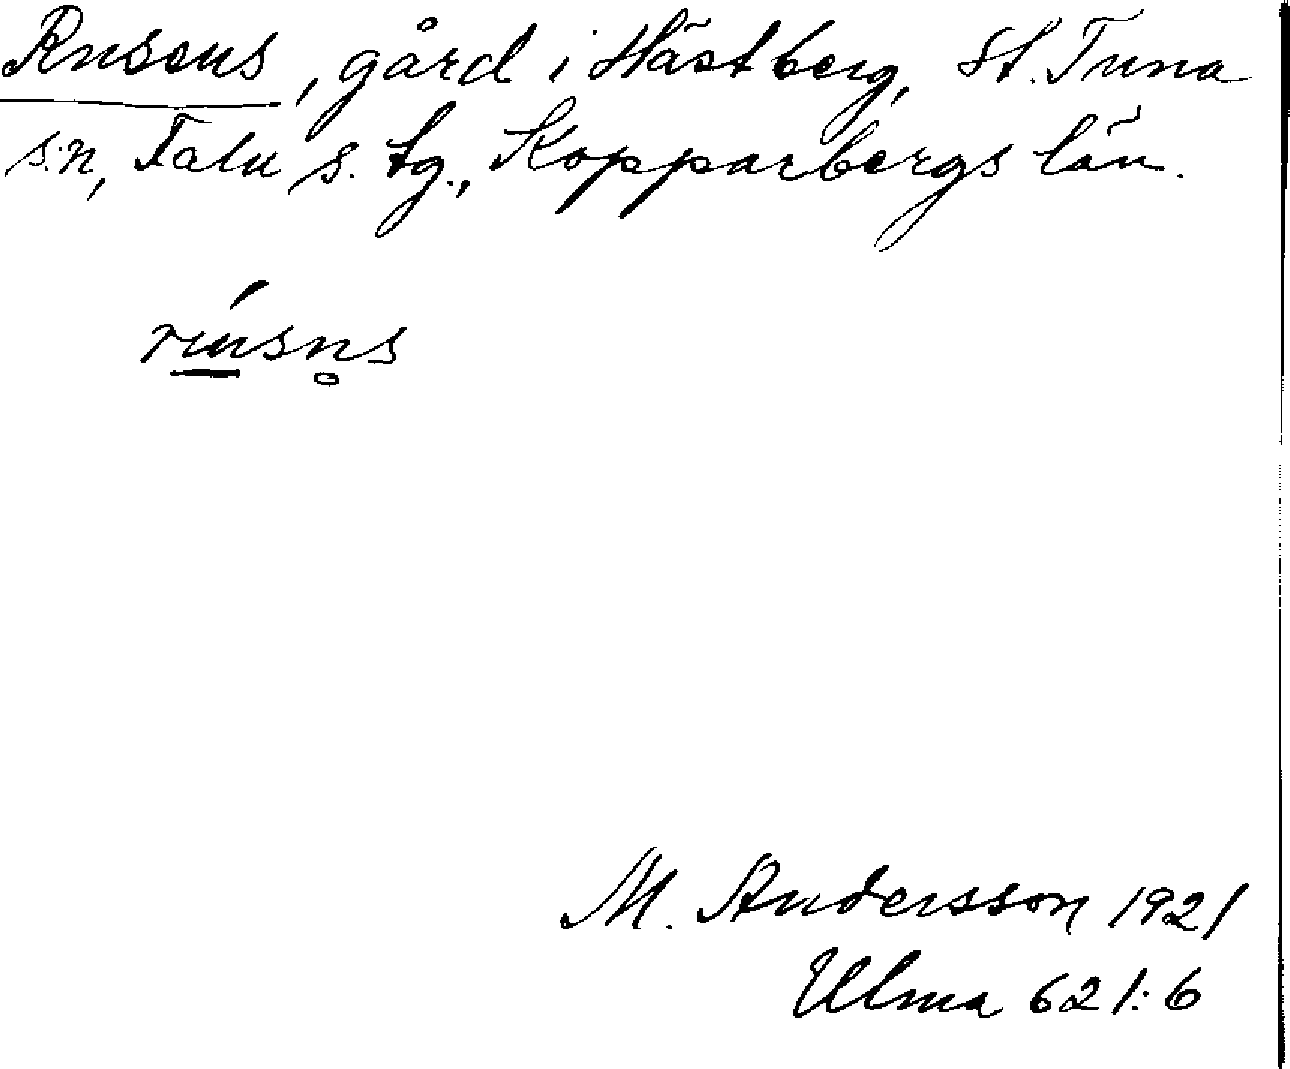 Rusens, gård i Hästberg, St. Tuna
s:n, Falu s. tg., Kopparbergs län.
rú̠sn̥s
M. Andersson 1921
Ulma 621:6